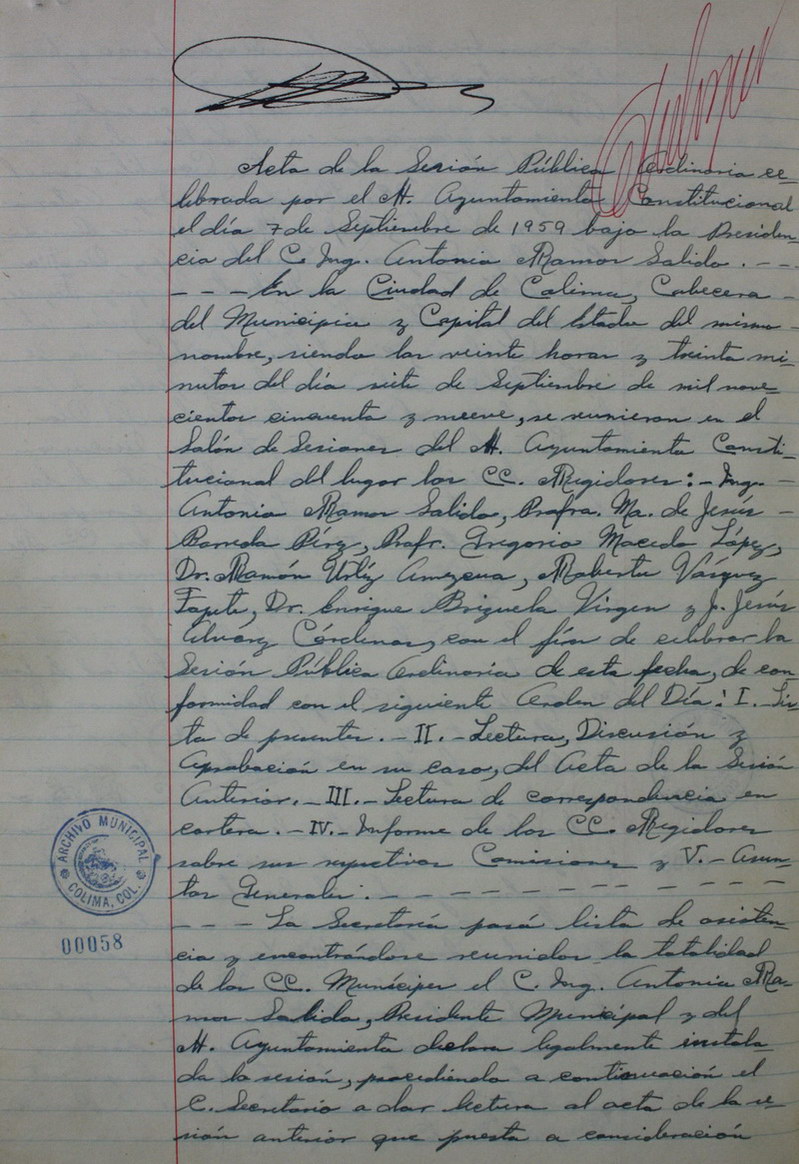 Acta de la Sesión Pública Ordinaria ce-
lebrada por el H. Ayuntamiento Constitucional
el día 7 de Septiembre de 1959 bajo la Presiden-
cia del C. Ing. Antonio Ramos Salido. - -
- - - En la Ciudad de Colima, Cabecera -
del Municipio y Capital del Estado del mismo
nombre, siendo las veinte horas y treinta mi-
nutos del día siete de Septiembre de mil nove-
cientos cincuenta y nueve, se reunieron en el
Salón de Sesiones del H. Ayuntamiento Consti-
tucional del lugar los CC. Regidores: - Ing. -
Antonio Ramos Salido, Profra. Ma. de Jesús -
Barreda Pérez, Profr. Gregorio Macedo López,
Dr. Ramón Urtiz Amezcua, Roberto Vázquez
Tapete, Dr. Enrique Brizuela Virgen y J. Jesús
Alvarez Cárdenas, con el fin de celebrar la
Sesión Pública Ordinaria de esta fecha, de con-
formidad con el siguiente Orden del Día: I. Lis-
ta de presentes. - II. - Lectura, Discusión y
Aprobación en su caso, del Acta de la Sesión
Anterior. - III. - Lectura de correspondencia en
cartera. - IV. - Informe de los CC. Regidores
sobre sus respectivas Comisiones y V. - Asun-
tos Generales. - - - - - - - - - -
- - - La Secretaría pasó lista de asisten-
cia y encontrándose reunidos la totalidad
de los CC. Munícipes el C. Ing. Antonio Ra-
mos Salido, Presidente Municipal y del
H. Ayuntamiento declara legalmente instala-
da la sesión, procediendo a continuación el
C. Secretario a dar lectura al acta de la se-
sión anterior que puesta a consideración
ARCHIVO MUNICIPAL
COLIMA, COL.
00058